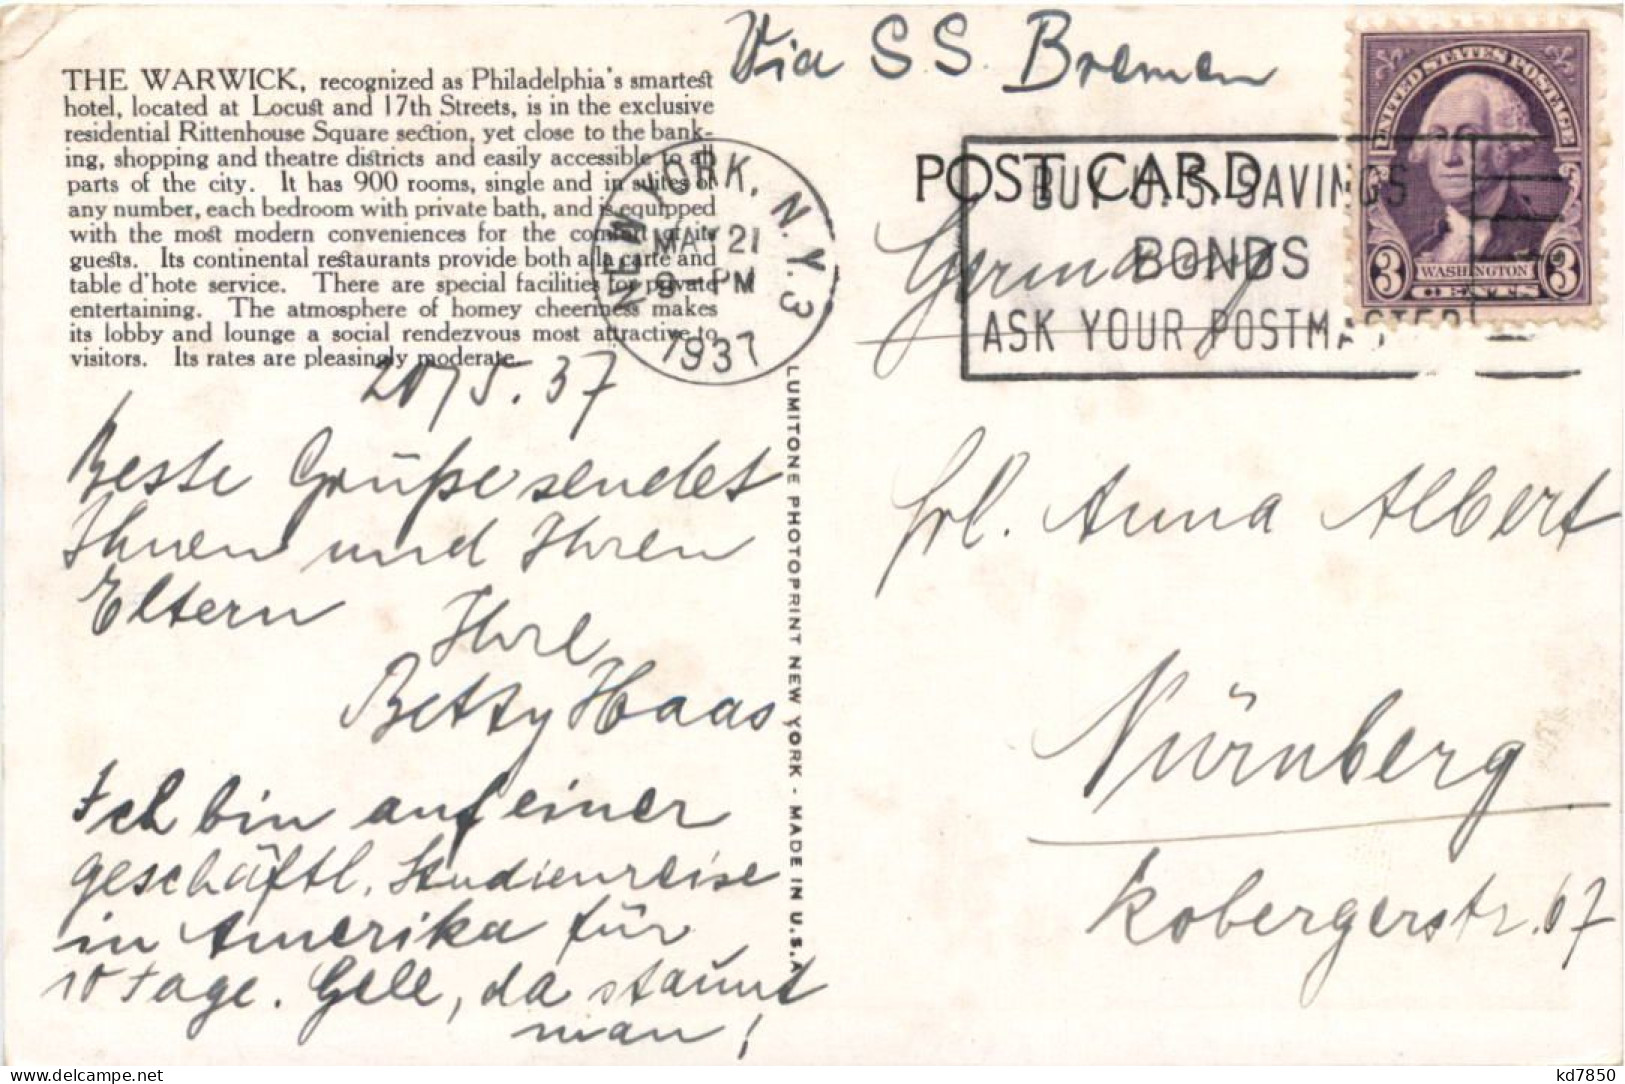 Via S.S. Bremen
THE WARWICK, recognized as Philadelphia's smartest
hotel, located at Locust and 17th Streets, is in the exclusive
residential Rittenhouse Square section, yet close to the bank-
ing, shopping and theatre districts and easily accessible to all
parts of the city. It has 900 rooms, single and in suites of
any number, each bedroom with private bath, and is equipped
with the most modern conveniences for the comfort of its
guests. Its continental restaurants provide both a la carte and
table d'hote service. There are special facilities for private
entertaining. The atmosphere of homey cheeriness makes
its lobby and lounge a social rendezvous most attractive to
visitors. Its rates are pleasingly moderate.
NEW YORK, N.Y. 3
MAY 21
9-PM
1937
POST CARD
BUY U.S. SAVINGS
BONDS
ASK YOUR POSTMASTER
UNITED STATES POSTAGE
WASHINGTON
3 CENTS 3
Germany
20/5.37
Beste Grüße sendet
Ihnen und Ihren
Eltern
Ihre
Betty Haas
Ich bin auf einer
geschäftl. Studienreise
in Amerika für
10 Tage. Gell, da staunt
man!
LUMITONE PHOTOPRINT NEW YORK - MADE IN U.S.A.
Frl. Anna Albert
Nürnberg
Kobergerstr. 67
kd7850